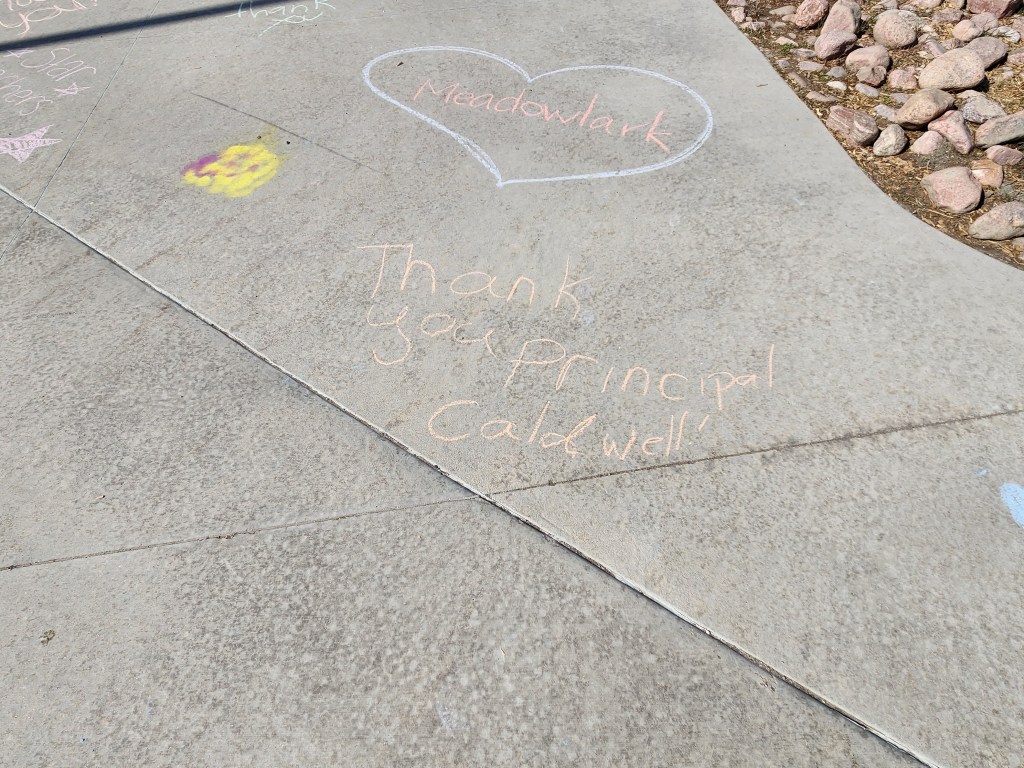 you!
Thank
you
Star
Meadowlark
Thank
you Principal
Caldwell!